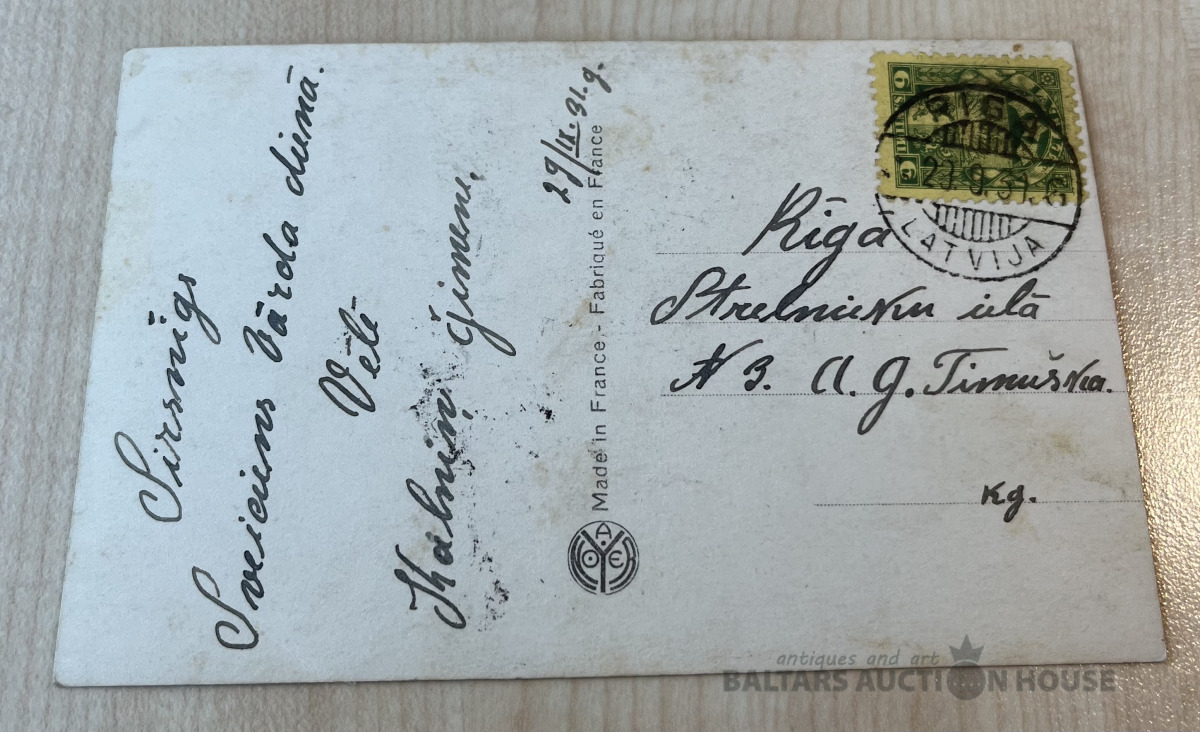 Sirsnīgs
Sveiciens Vārda dienā.
Vēlē
Kalniņ ģimene.
29/IX.31.g.
Made in France - Fabriqué en France
RIGA
LATVIJA
6
6
Rīga
Strelnieku ielā
N 3. A. G. Timuška.
kg.
antiques and art
BALTARS AUCTION HOUSE